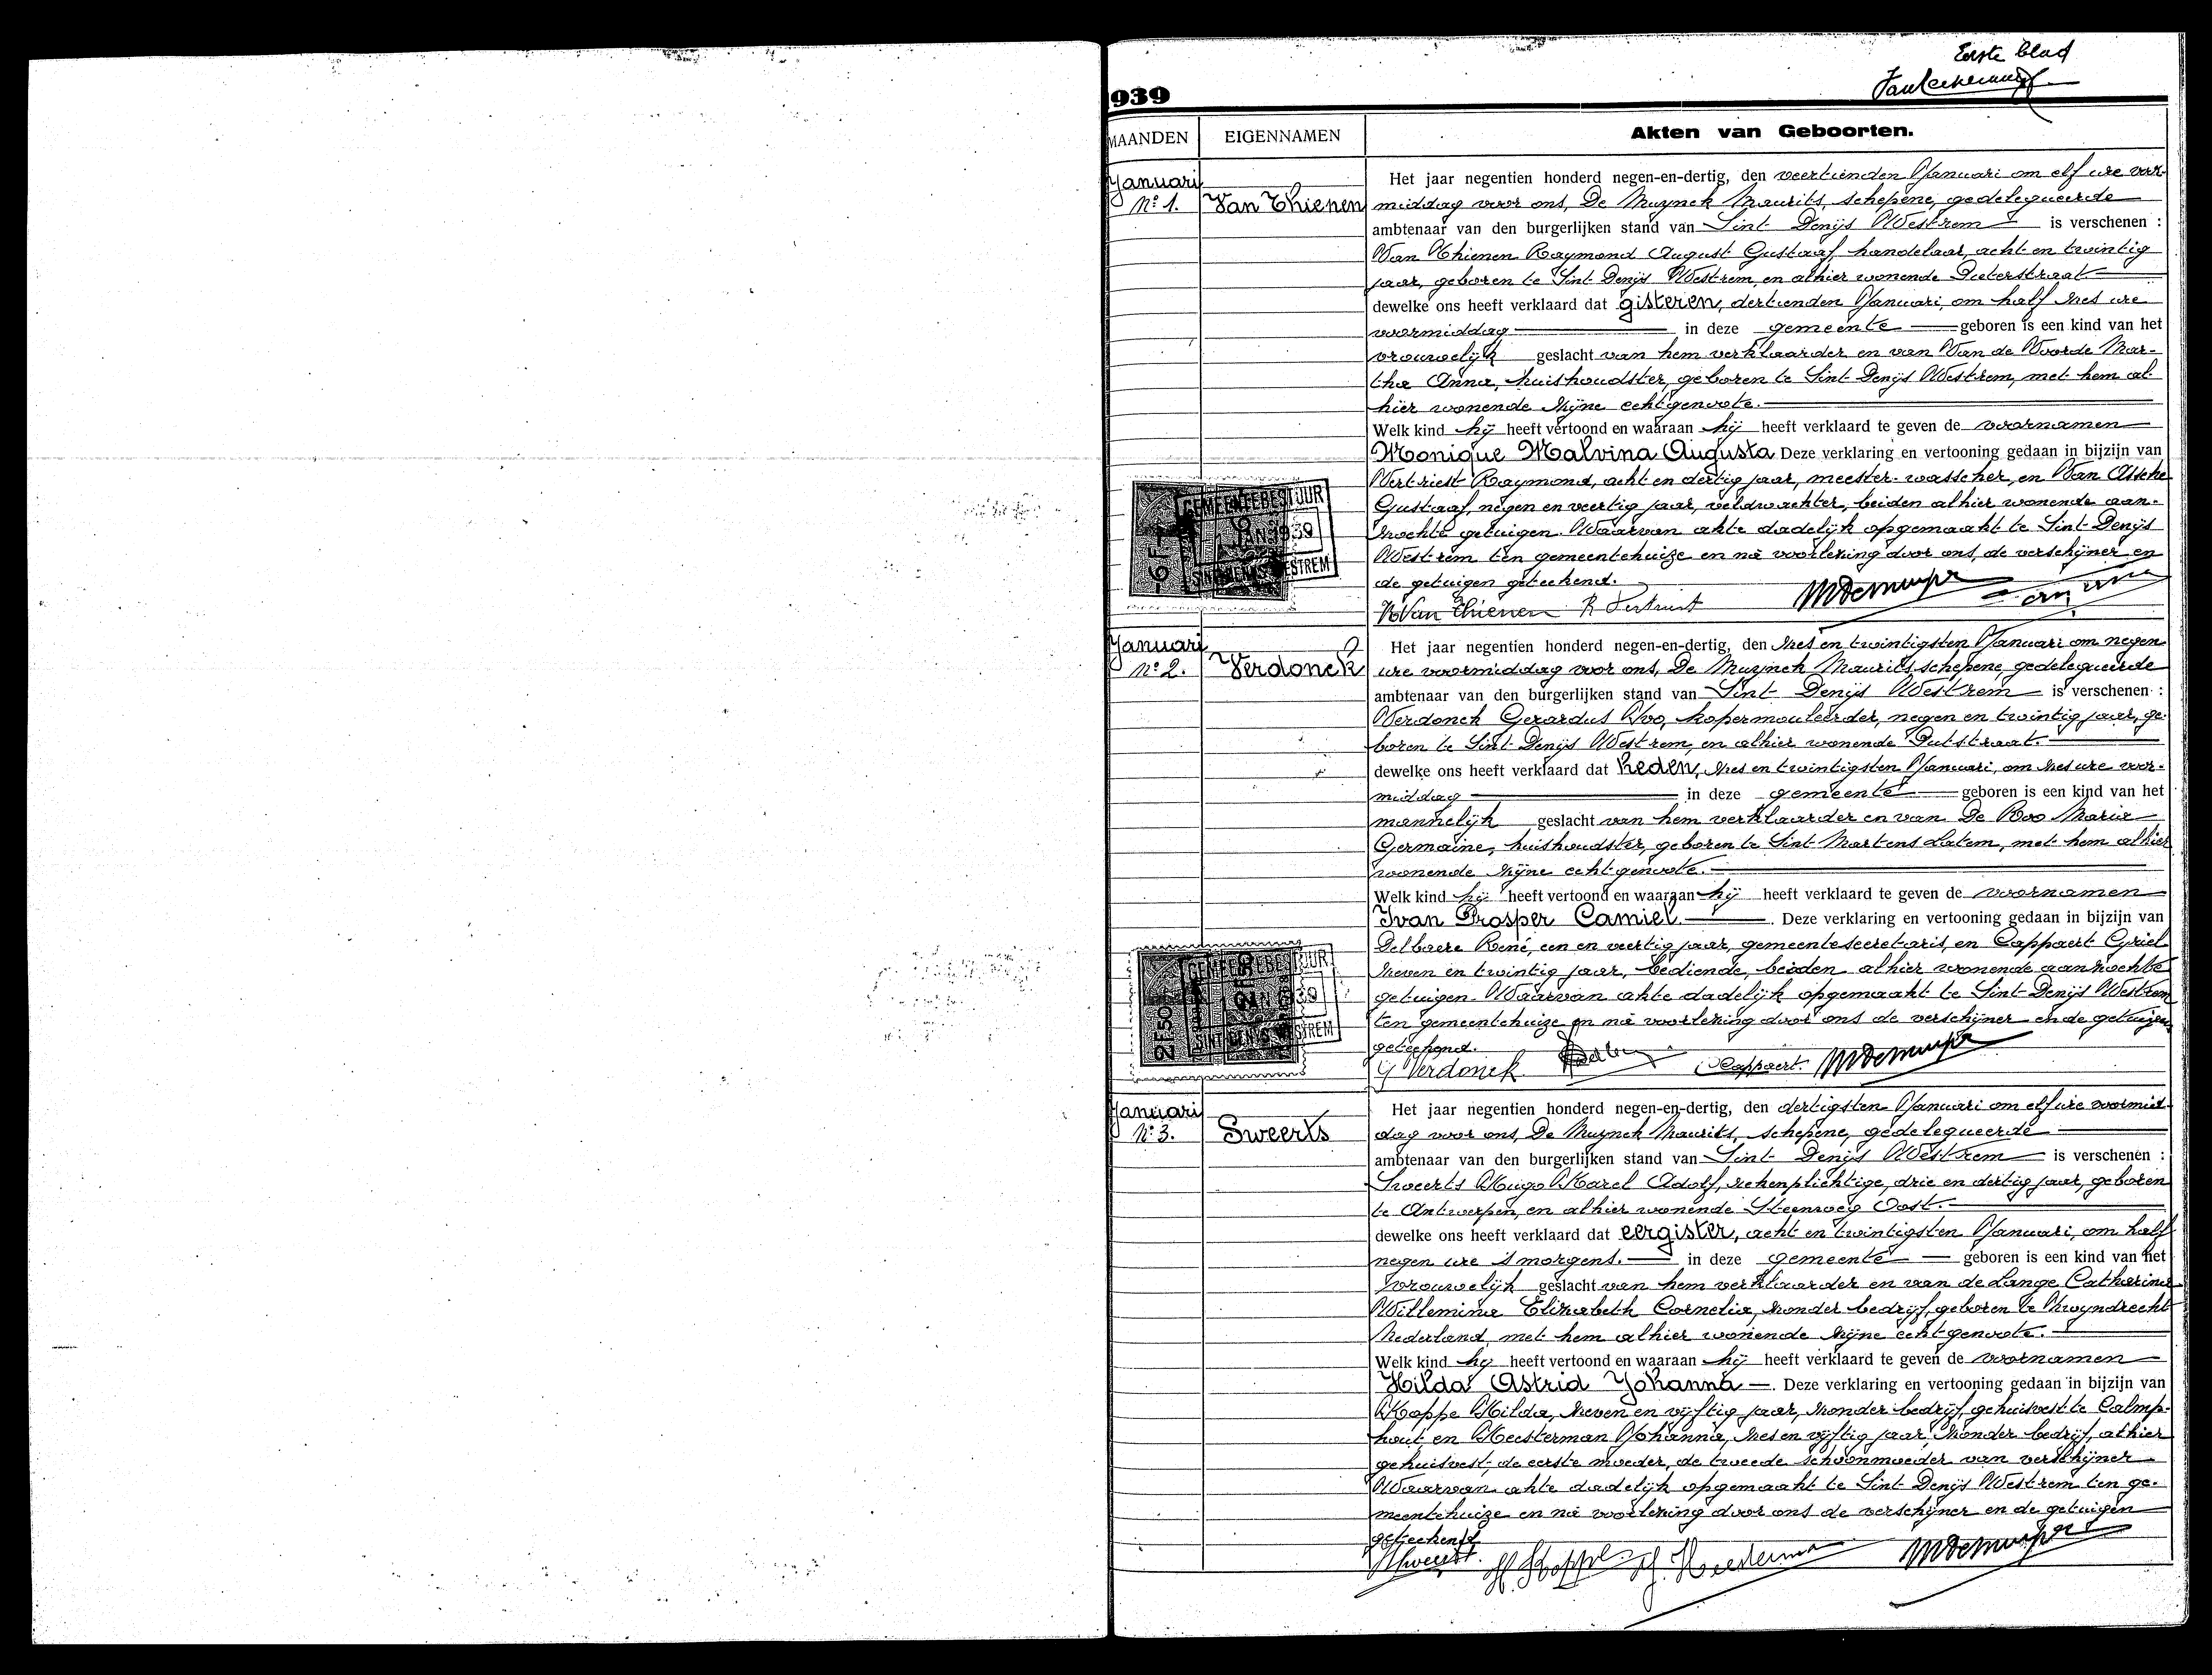 Eerste blad
939
MAANDEN EIGENNAMEN Akten van Geboorten.
Januari
Nº 1. Van Thienen
Het jaar negentien honderd negen-en-dertig, den veertienden Januari om elf ure voor-
middag voor ons, De Muynck Maurits, schepene, gedelegueerde
ambtenaar van den burgerlijken stand van Sint Denijs Westrem is verschenen :
Van Thienen Raymond August Gustaaf, handelaar, acht en twintig
jaar, geboren te Sint Denijs Westrem, en alhier wonende
dewelke ons heeft verklaard dat gisteren, dertienden Januari, om half zes ure
voormiddag in deze gemeente geboren is een kind van het
vrouwelijk geslacht van hem verklaarder en van Van de Voorde Mar-
tha Anna, huishoudster, geboren te Sint Denijs Westrem, met hem al-
hier wonende zijne echtgenoote.
Welk kind hij heeft vertoond en waaraan hij heeft verklaard te geven de voornamen
Monique Malvina Augusta Deze verklaring en vertooning gedaan in bijzijn van
Vertriest Raymond, acht en dertig jaar, meester-wasscher, en Van Assche
Gustaaf, negen en veertig jaar, veldwachter, beiden alhier wonende aan-
zochte getuigen. Waarvan akte dadelijk opgemaakt te Sint Denijs
Westrem ten gemeentehuize en na voorlezing door ons, de verschijner en
de getuigen geteekend.
GEMEENTEBESTUUR
JAN 1939
SINT DENIJS WESTREM
6F
R Van Thienen R Vertriest MDemuynck
Januari
Nº 2. Verdonck
Het jaar negentien honderd negen-en-dertig, den zes en twintigsten Januari om negen
ure voormiddag voor ons, De Muynck Maurits, schepene, gedelegueerde
ambtenaar van den burgerlijken stand van Sint Denijs Westrem is verschenen :
Verdonck Gerardus Ivo, kopermouleerder, negen en twintig jaar, ge-
boren te Sint Denijs Westrem, en alhier wonende Putstraat.
dewelke ons heeft verklaard dat heden, zes en twintigsten Januari, om zes ure voor-
middag in deze gemeente geboren is een kind van het
mannelijk geslacht van hem verklaarder en van De Roo Maria
Germaine, huishoudster, geboren te Sint Martens Latem, met hem alhier
wonende zijne echtgenoote.
Welk kind hij heeft vertoond en waaraan hij heeft verklaard te geven de voornamen
Ivan Prosper Camiel. Deze verklaring en vertooning gedaan in bijzijn van
Delbaere René, een en veertig jaar, gemeentesecretaris, en Cappaert Cyriel
zeven en twintig jaar, bediende, beiden alhier wonende aanzochte
getuigen. Waarvan akte dadelijk opgemaakt te Sint Denijs Westrem
ten gemeentehuize en na voorlezing door ons de verschijner en de getuigen
geteekend.
GEMEENTEBESTUUR
JAN 1939
SINT DENIJS WESTREM
2F50
G Verdonck Cappaert. MDemuynck
Januari
Nº 3. Sweerts
Het jaar negentien honderd negen-en-dertig, den dertigsten Januari om elf ure voormid-
dag voor ons, De Muynck Maurits, schepene, gedelegueerde
ambtenaar van den burgerlijken stand van Sint Denijs Westrem is verschenen :
Sweerts Hugo Karel Adolf, rekenplichtige, drie en dertig jaar, geboren
te Antwerpen, en alhier wonende Steenweg Oost.
dewelke ons heeft verklaard dat eergister, acht en twintigsten Januari, om half
negen ure s morgens. in deze gemeente geboren is een kind van het
vrouwelijk geslacht van hem verklaarder en van de Lange Catharina
Willemina Elizabeth Cornelia, zonder bedrijf, geboren te Zwyndrecht
Nederland, met hem alhier wonende zijne echtgenoote.
Welk kind hij heeft vertoond en waaraan hij heeft verklaard te geven de voornamen
Hilda Astrid Johanna. Deze verklaring en vertooning gedaan in bijzijn van
Koppe Hilda, zeven en vijftig jaar, zonder bedrijf, gehuisvest te Calmp-
hout, en Heesterman Johanna, zes en vijftig jaar, zonder bedrijf, alhier
gehuisvest, de eerste moeder, de tweede schoonmoeder van verschijner
Waarvan akte dadelijk opgemaakt te Sint Denijs Westrem ten ge-
meentehuize en na voorlezing door ons de verschijner en de getuigen
geteekend
HSweerts. H. Koppe J. Heesterman MDemuynck